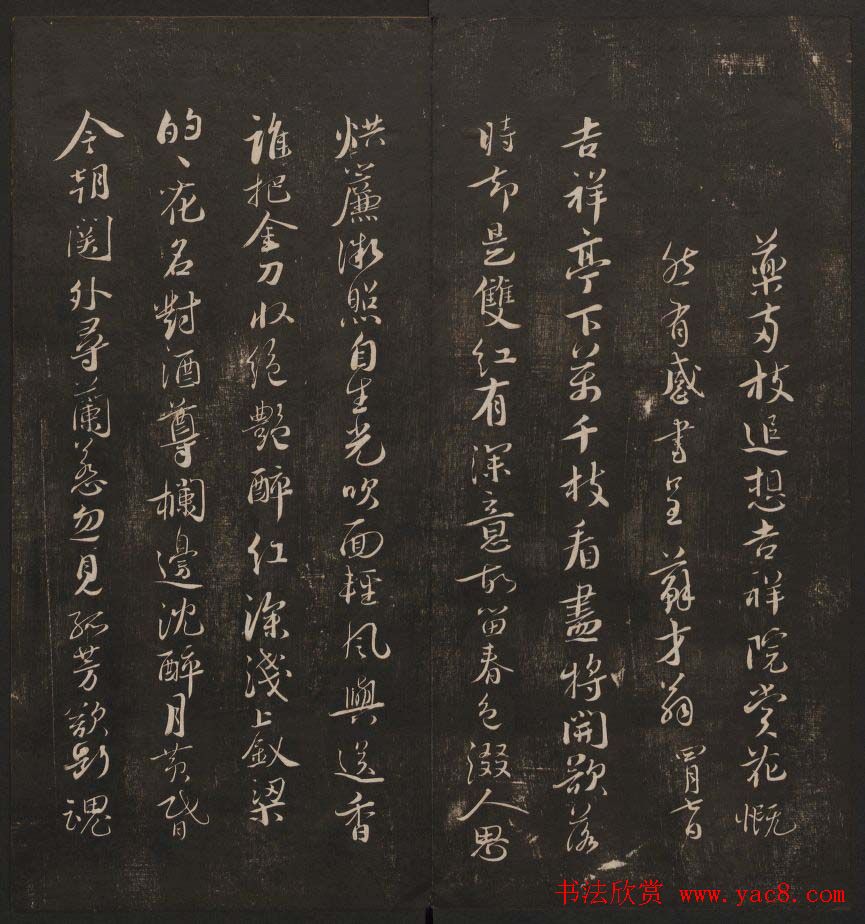 藥數枝追想吉祥院赏花慨
然有感書呈蘇才翁 四月七日
吉祥亭下萬千枝看盡將開欲落
時却是雙紅有深意故留春色綴人思
烘簾微照自生光吹面輕風與送香
誰把金刀收绝艷醉红深淺上釵梁
的〻花名對酒尊欄邊沈醉月黄昏
今朝関外尋蘭蕙忽見孤芳欲斷魂
书法欣赏 www.yac8.com